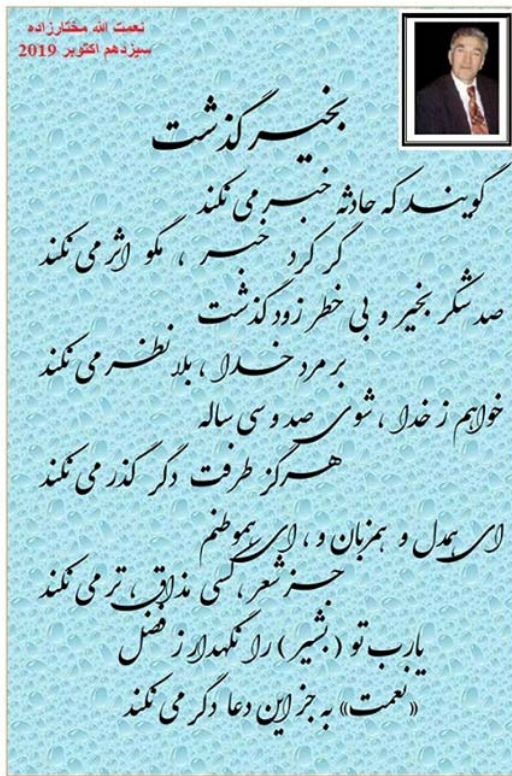 نعمت الله مختارزاده
سیزدهم اکتوبر 2019
بخیر گذشت
گویند که حادثه خبر می نکند
گر کرد خبر ، مگو اثر می نکند
صد شکر بخیر و بی خطر زود گذشت
بر مرد خدا ، بلا نظر می نکند
خواهم ز خدا ، شوی صد و سی ساله
هرگز طرفت دگر گذر می نکند
ای همدل و همزبان و ، ای هموطنم
جز شعر ، کسی مذاق ، تر می نکند
یارب تو (بشیر) را نگهدار ز فضل
«نعمت» به جز این دعا دگر می نکند